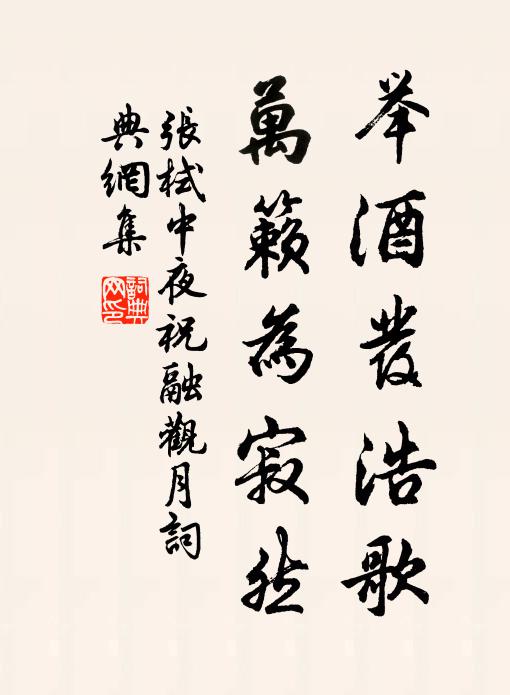 举酒發浩歌
萬籟為寂然
張栻中夜祝融觀月詞
典網集
詞典
网印